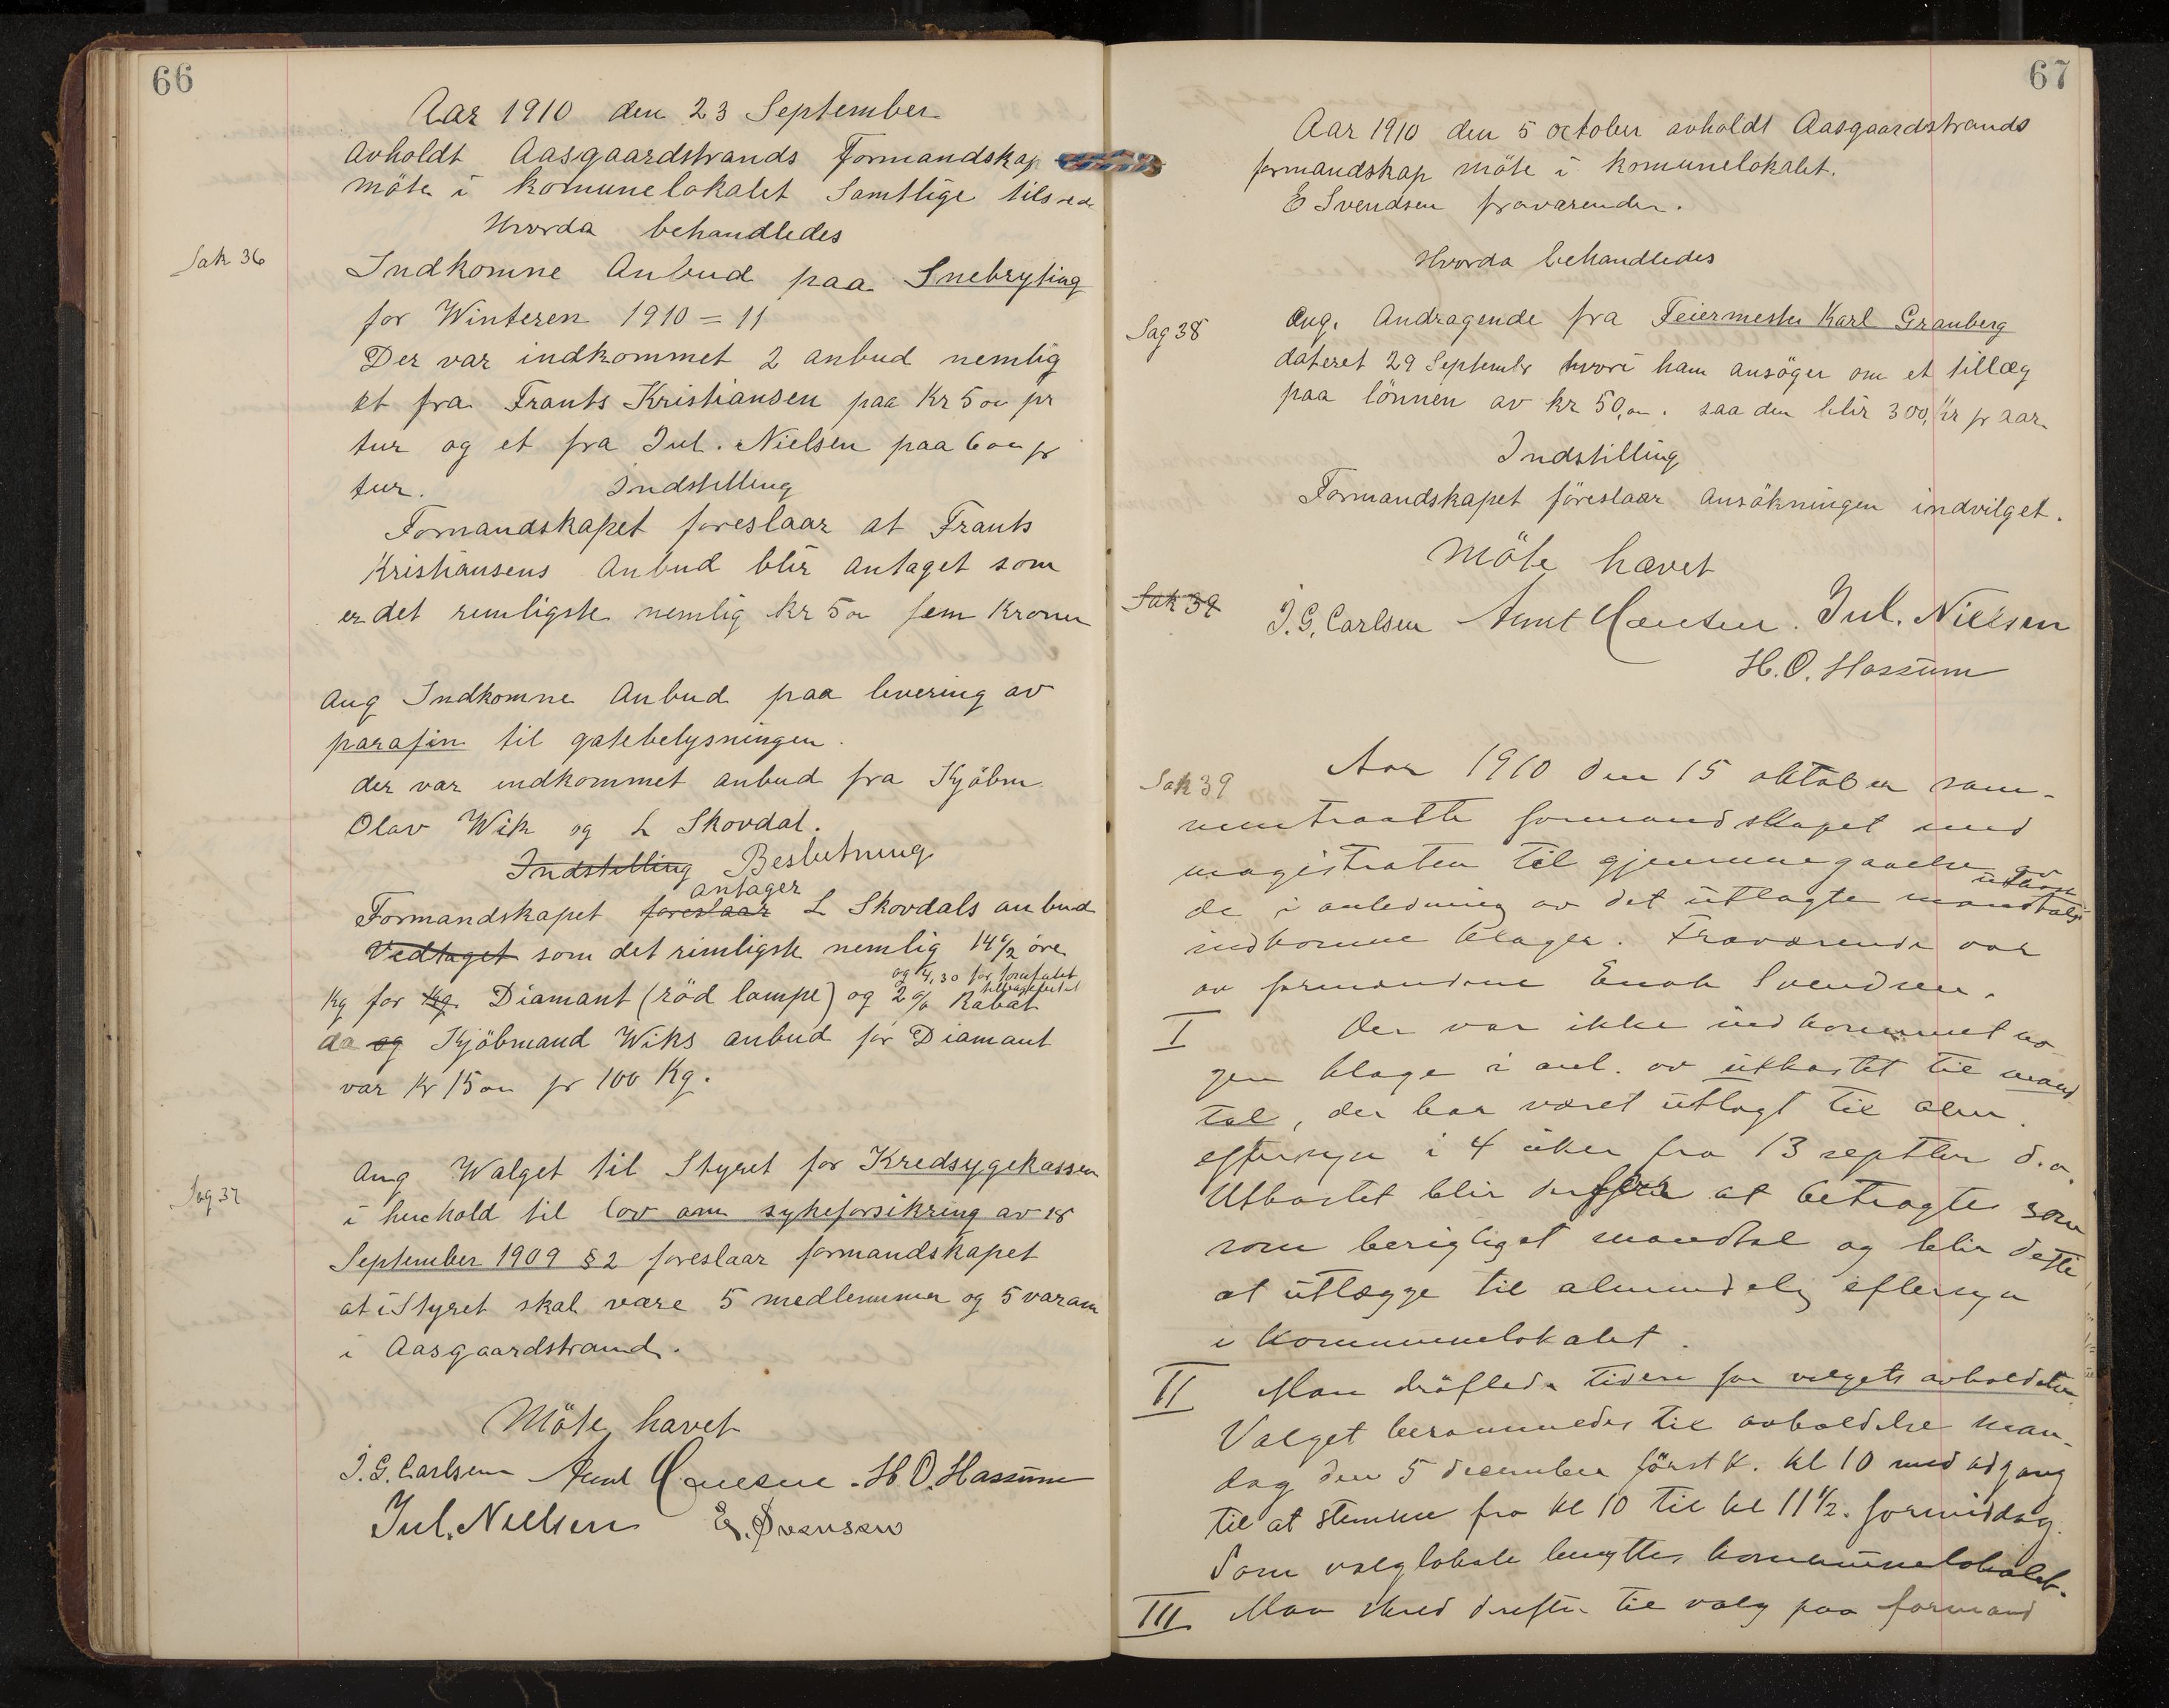 66
Aar 1910 den 23 September
avholdt Aasgaardstrands Formandskap
möte i komunelokalet Samtlige tilsted
Hvorda behandledes
Sak 36
Indkomne Anbud paa Snebryting
for Winteren 1910 = 11
Der var indkommet 2 anbud nemlig
et fra Frants Kristiansen paa Kr 5 oo pr
tur og et fra Jul. Nielsen paa 6 oo pr
tur. Indstilling
Formandskapet foreslaar at Frants
Kristiansens Anbud blir antaget som
er det rimligste nemlig kr 5 oo fem Kroner
Ang Indkomne Anbud paa levering av
parafin til gatebelysningen.
der var indkommet anbud fra Kjöbm
Olav Wik og L Skovdal.
Indstilling Beslutning
antager
Formandskapet foreslaar L Skovdals anbud
Vedtaget som det rimligste nemlig 14 1/2 öre
og 4,30 for forafatet
tilbagefertet
Kg for Kg Diamant (röd lampe) og 2 % Rabat
da og Kjöbmand Wiks anbud for Diamant
var Kr 15 oo pr 100 Kg.
Sag 37
Ang Walget til Styret for Kredsygekassen
i henhold til lov om sykeforsikring av 18
September 1909 § 2 foreslaar formandskapet
at i Styret skal være 5 medlemmer og 5 varam
i Aasgaardstrand.
Möte hævet
J. G. Carlsen Arnt Hansen. H. O. Hassum
Jul. Nielsen E. Svensen
67
Aar 1910 den 5 october avholdt Aasgaardstrands
formandskap möte i komunelokalet.
E Svendsen fraværender.
Hvorda behandledes
Sag 38
Ang. Andragende fra Feiermester Karl Granberg
dateret 29 Septembr hvori ham ansöger om et tillæg
paa lönnen av kr 50,oo. saa den blir 300, Kr pr aar.
Indstilling
Formandskapet föreslaar ansökningen indvilget.
Möte hævet
Sak 39
J. G. Carlsen Arnt Hansen. Jul. Nielsen
H. O. Hassum
Sak 39
Aar 1910 den 15 oktober sam-
mentraatte formandskapet med
magistraten til gjennemgaaelse av
utkast
de i anledning av det utlagte mandtals
indkomne klager. Fraværende var
av formændene Enok Svendsen.
I
Der var ikke indkommet no-
gen klage i anl. av utkastet til mand
tal, der har været utlagt til alm.
eftersyn i 4 uker fra 13 septbr d. a.
Utkastet blir derfor at betragte som
som berigtiget mandtal og blir dette
at utlægge til almindelig eftersyn
i kommunelokalet.
II
Man dröftede tiden for valgets avholdelse.
Valget berammedes til avholdelse man-
dag den 5 december förstk. kl 10 med adgang
til at stemme fra kl 10 til kl 11 1/2. formiddag.
Som valglokale benyttes kommunelokalet.
III
Man skred derefter til valg paa formand